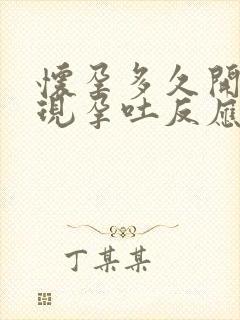 懷孕多久開
現孕吐反應
丁某某